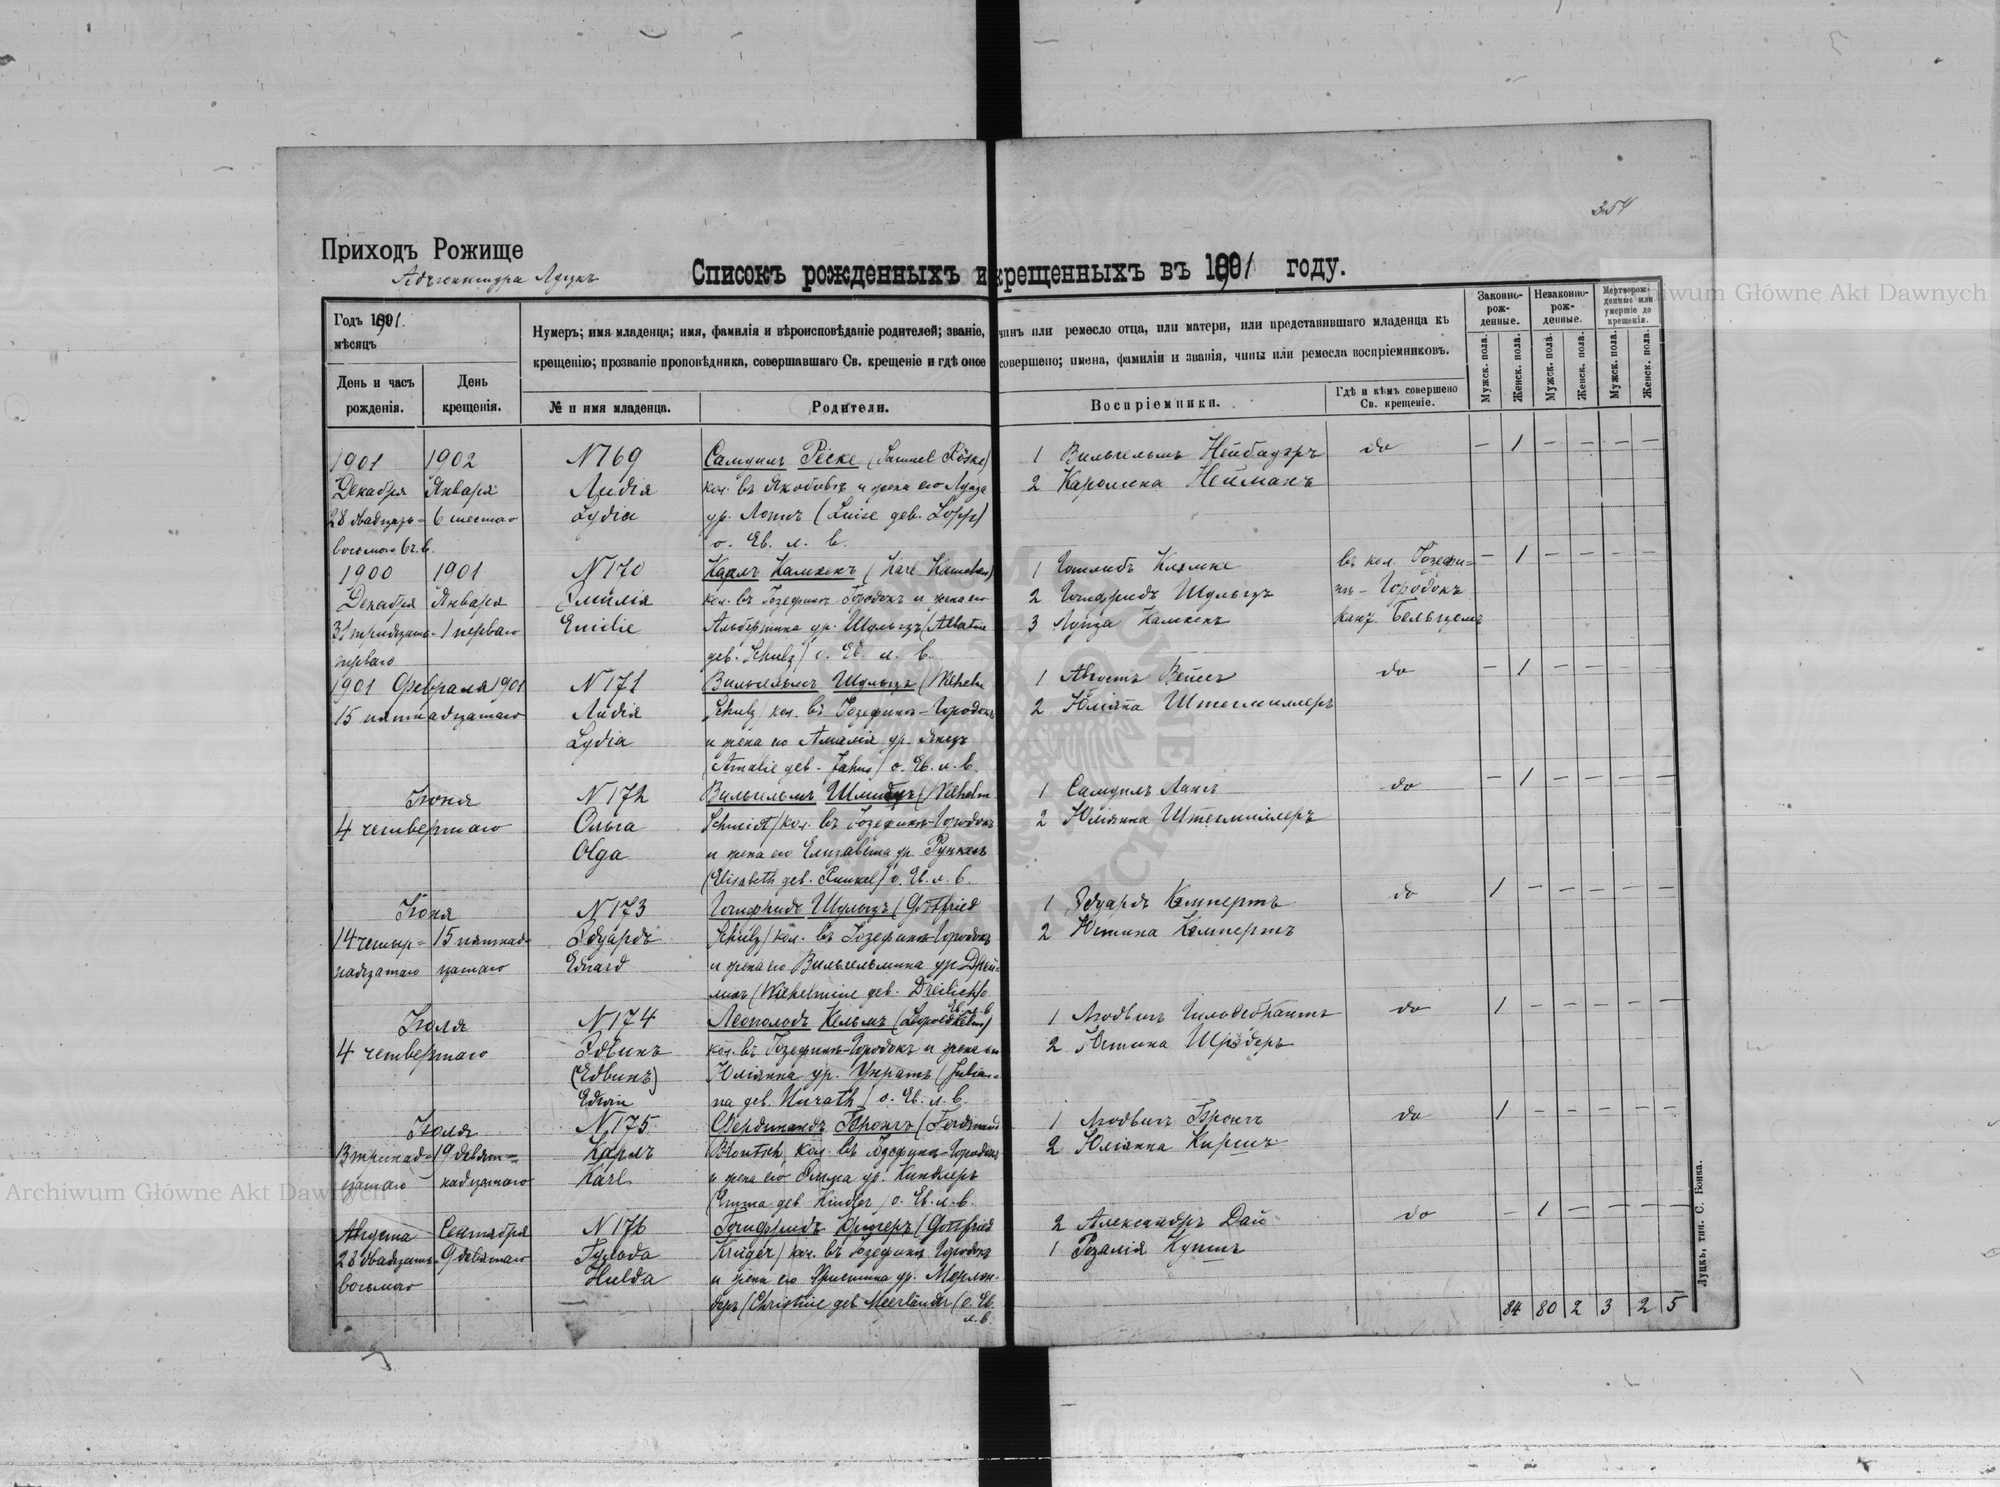 354
Приходъ Рожище
Адъюнктура Луцкъ
Списокъ рожденныхъ и крещенныхъ въ 1901 году.
Годъ 1901.
мѣсяцъ
День и часъ рожденія.
День крещенія.
Нумеръ; имя младенца; имя, фамилія и вѣроисповѣданіе родителей; званіе, чинъ или ремесло отца, или матери, или представившаго младенца къ
крещенію; прозваніе проповѣдника, совершавшаго Св. крещеніе и гдѣ оное совершено; имена, фамиліи и званія, чины или ремесла воспріемниковъ.
№ и имя младенца.
Родители.
Воспріемники.
Гдѣ и кѣмъ совершено Св. крещеніе.
Законно-рож-денные.
Незаконно-рож-денные.
Мертворож-денные или умершіе до крещенія.
Мужск. пола.
Женск. пола.
Мужск. пола.
Женск. пола.
Мужск. пола.
Женск. пола.
1901 1902 N 169 Самуилъ Рёске (Samuel Röske) 1 Вильгельмъ Нейбауэръ do – 1 – – – –
Декабря Января Лидія кол. въ Якобовкѣ и жена его Луиза 2 Каролина Нейманъ
28 двадцать- 6 шестого Lydia ур. Лоппъ (Luise geb. Lopp)
восьмого о. Ев. л. в.
1900 1901 N 170 Карлъ Камхенъ (Karl 1 Готлибъ Клемке въ кол. Іозефи- – 1 – – – –
Декабря Января Эмилія кол. въ Іозефинъ Городокъ и жена его 2 Готфридъ Шульцъ нъ-Городокъ
31 тридцать- 1 перваго Emilie Альбертина ур. Шульцъ 3 Луиза Камхенъ кант.
перваго geb. Schulz) о. Ев. л. в.
1901 Февраля 1901 N 171 Вильгельмъ Шульцъ (Wilhelm 1 Августъ Вейсъ do – 1 – – – –
15 пятнадцатаго Лидія Schulz) кол. въ Іозефинъ-Городокъ 2 Юліяна Штегмиллеръ
Lydia и жена его Амалія ур.
(Amalie geb. о. Ев. л. в.
Іюня N 172 Вильгельмъ Шмидтъ (Wilhelm 1 Самуилъ Лангъ do – 1 – – – –
4 четвертаго Ольга Schmidt) кол. въ Іозефинъ-Городокъ 2 Юліянна Штегмиллеръ
Olga и жена его Елизавета ур. Рункель
(Elisabeth geb. Runkel) о. Ев. л. в.
Іюня N 173 Готфридъ Шульцъ (Gottfried 1 Эдуардъ Кемпертъ do 1 – – – – –
14 четыр- 15 пятнад- Эдуардъ Schulz) кол. въ Іозефинъ Городокъ 2 Юстина Кемпертъ
надцатаго цатаго Eduard и жена его Вильгельмина ур. Дрей-
лихъ (Wilhelmine geb. Dreilich) о.
Ев. л. в.
Іюля N 174 Леопольдъ Кельмъ (Leopold Kelm) 1 Людвигъ Гильдебрантъ do 1 – – – – –
4 четвертаго Эдвинъ кол. въ Іозефинъ-Городокъ и жена его 2 Юстина Шрёдеръ
(Едвинъ) Юліянна ур. Унратъ (Julian-
Edwin na geb. Unrath) о. Ев. л. в.
Іюля N 175 Фердинандъ Брончъ (Ferdinand 1 Людвигъ Брончъ do 1 – – – – –
13 тринад- 19 девят- Карлъ Brontsch кол. въ Іозефинъ-Городокъ 2 Юліанна Киршъ
цатаго надцатаго Karl и жена его Эмма ур. Киндлеръ
(Emma geb. Kindler) о. Ев. л. в.
Августа Сентября N 176 Готфридъ Кригеръ (Gottfried 2 Александръ Дай do – 1 – – – –
28 двадцать- 9 девятаго Гульда Krüger) кол. въ Іозефинъ Городокъ 1 Розалія
восьмого Hulda и жена его Христина ур. Мерлен-
деръ (Christine geb. Meerländer) о. Ев.
л. в.
84 80 2 3 2 5
Луцкъ, тип. С. Бонка.
Archiwum Główne Akt Dawnych
Archiwum Główne Akt Dawnych